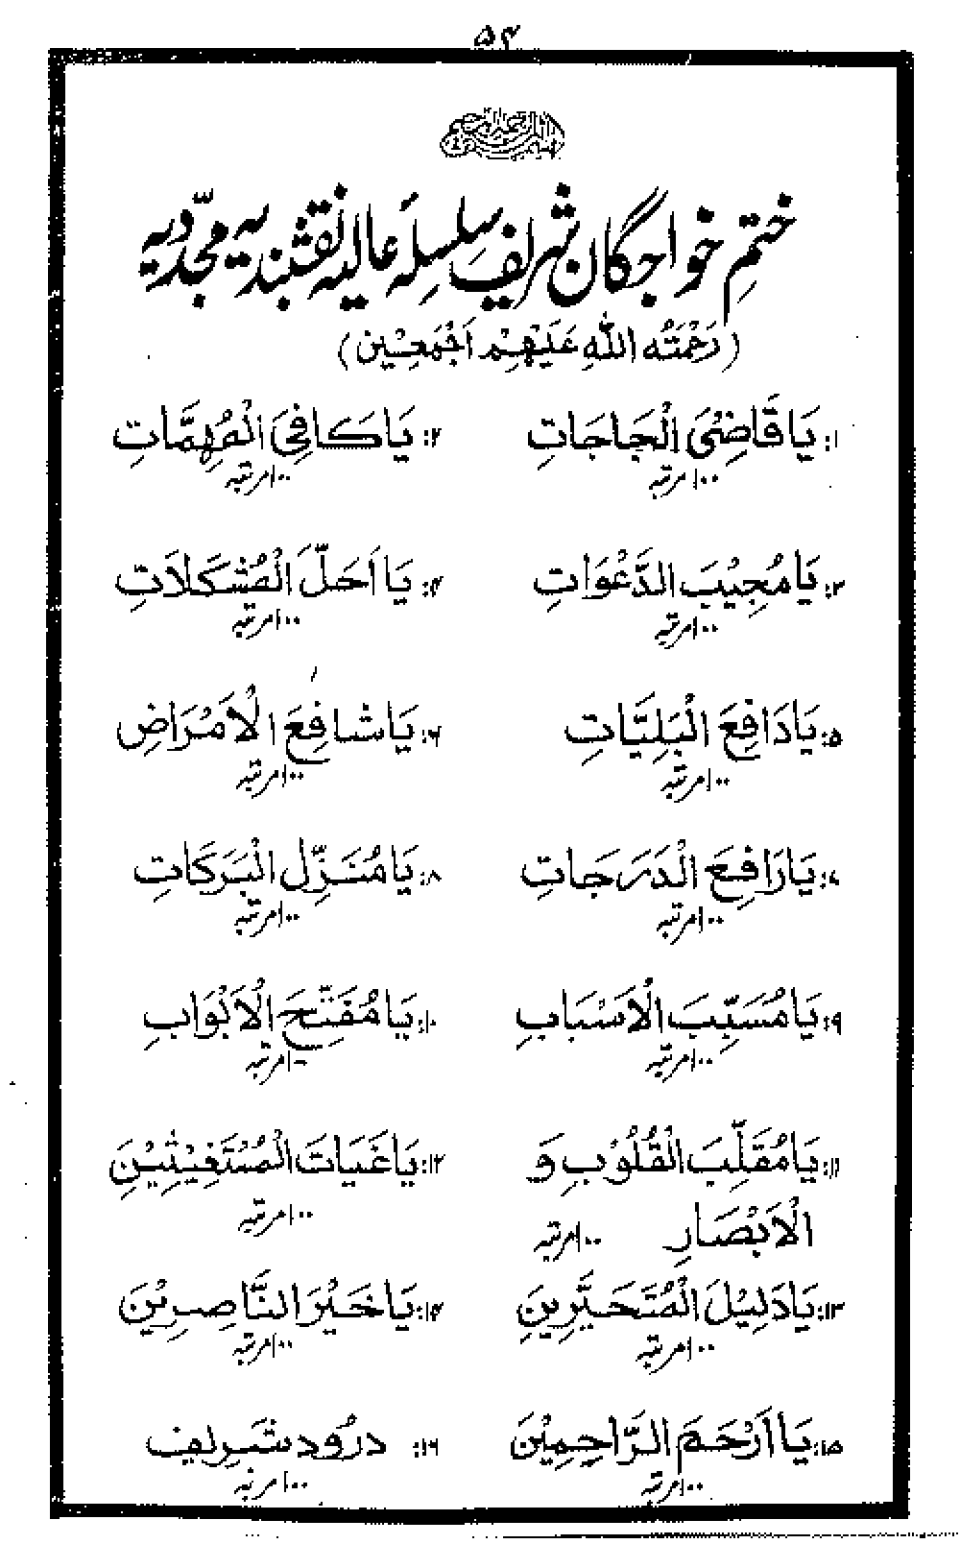 ۵۴
ختمِ خواجگان شریف سلسلۂ عالیہ نقشبندیہ مجدّدیہ
(رَحْمَتُہ اللّٰہِ عَلَیْھِمْ اَجْمَعِیْن)
۱: یَا قَاضِیَ الْحَاجَاتِ ۱۰۰ مرتبہ
۲: یَا کَافِیَ الْمُھِمَّاتِ ۱۰۰ مرتبہ
۳: یَا مُجِیْبَ الدَّعْوَاتِ ۱۰۰ مرتبہ
۴: یَا اَحَلَّ الْمُشْکَلَاتِ ۱۰۰ مرتبہ
۵: یَا دَافِعَ الْبَلِیَّاتِ ۱۰۰ مرتبہ
۶: یَا شَافِعَ الْاَمْرَاضِ ۱۰۰ مرتبہ
۷: یَا رَافِعَ الْدَرَجَاتِ ۱۰۰ مرتبہ
۸: یَا مُنَزِّلَ الْبَرَکَاتِ ۱۰۰ مرتبہ
۹: یَا مُسَبِّبَ الْاَسْبَابِ ۱۰۰ مرتبہ
۱۰: یَا مُفَتِّحَ الْاَبْوَابِ ۱۰۰ مرتبہ
۱۱: یَا مُقَلِّبَ الْقُلُوْبِ وَ
الْاَبْصَارِ ۱۰۰ مرتبہ
۱۲: یَا غَیَاثَ الْمُسْتَغِیْثِیْنَ ۱۰۰ مرتبہ
۱۳: یَا دَلِیْلَ الْمُتَحَیَّرِیْنَ ۱۰۰ مرتبہ
۱۴: یَا خَیْرَ النَّاصِرِیْنَ ۱۰۰ مرتبہ
۱۵: یَا اَرْحَمَ الرَّاحِمِیْنَ ۱۰۰ مرتبہ
۱۶: درُود شَرِیف ۱۰۰ مرتبہ